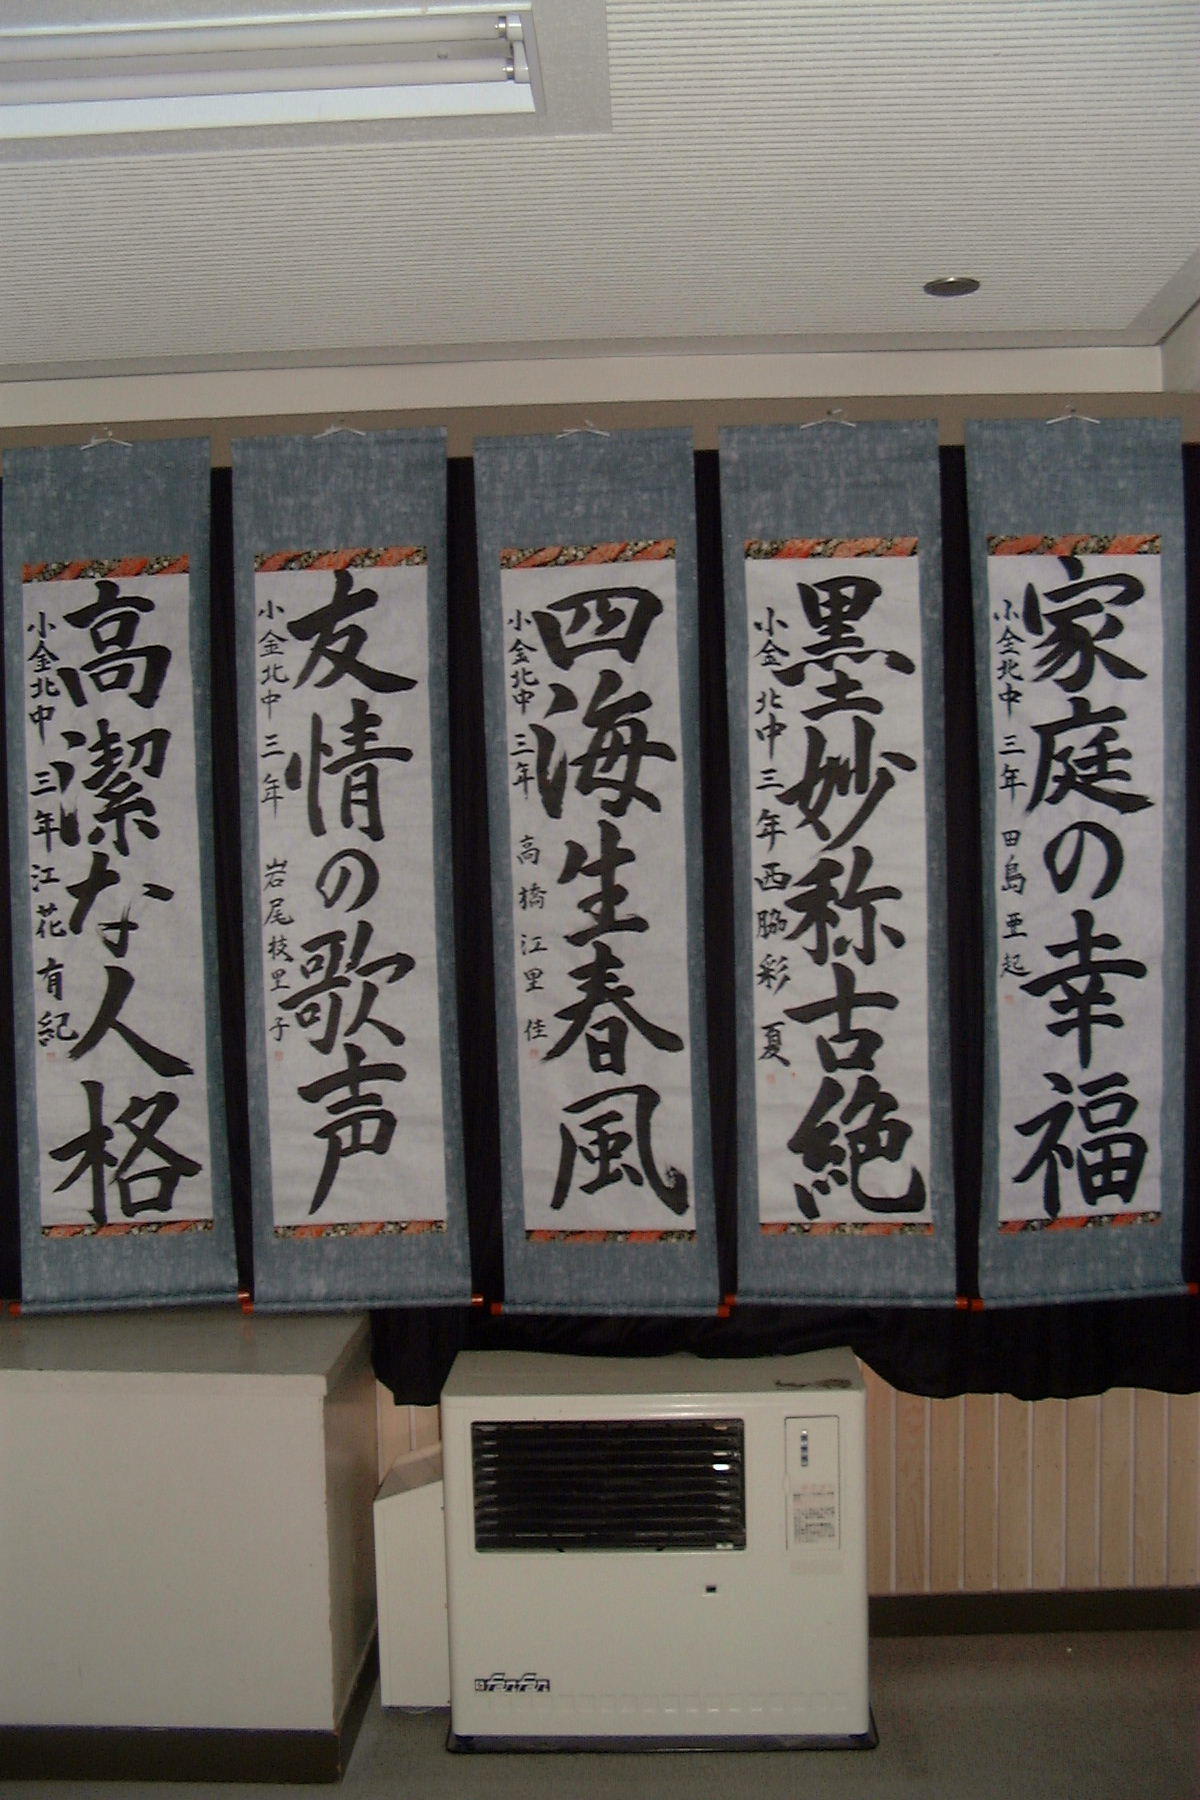 家庭の幸福
小金北中 三年 田島亜起
墨妙称古絶
小金北中三年 西脇彩夏
四海生春風
小金北中 三年 高橋江里佳
友情の歌声
小金北中 三年 岩尾枝里子
高潔な人格
小金北中 三年 江花有紀
fanfan